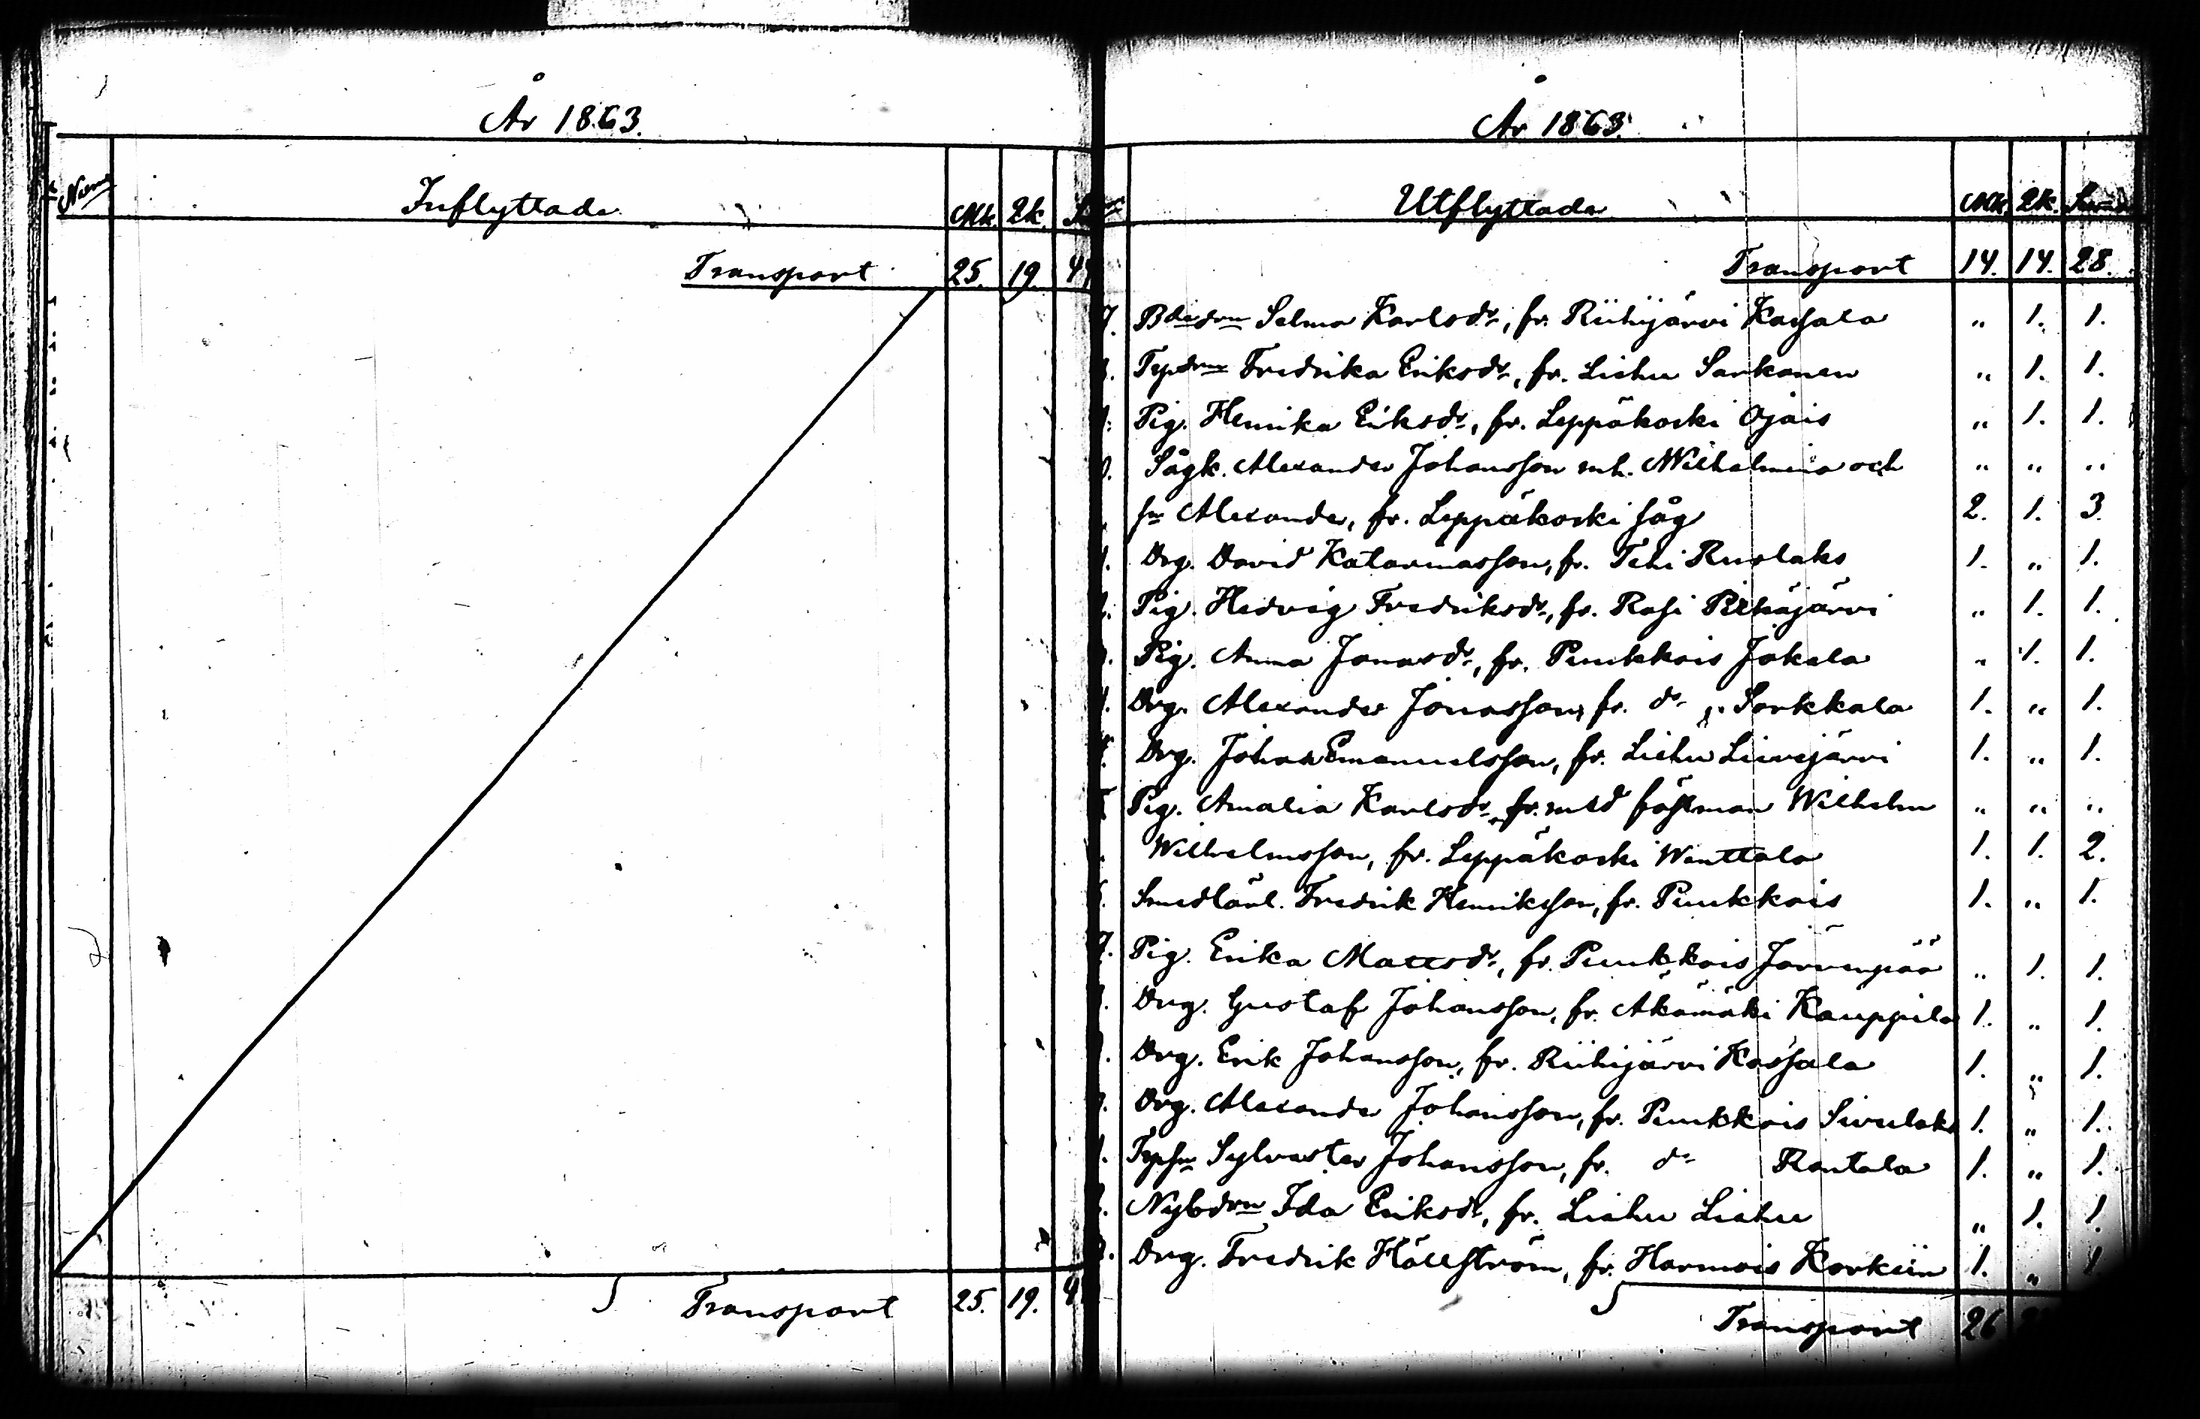 År 1863.
Inflyttade
Mk. Qk.
Transport 25. 19.
Transport 25. 19.
År 1863.
Utflyttade
Mk. Qk. Summa
Transport 14. 14. 28.
Bdedrn Selma Karlsdr, fr. Riihijärvi Kassala „ 1. 1.
Tpdrn Fredrika Eriksdr, fr. Liehu Sarkanen „ 1. 1.
Pig. Henrika Eriksdr, fr. Leppäkoski Ojais „ 1. 1.
Sågk. Alexander Johansson mh. Wilhelmina och „ „ „
sn Alexander, fr. Leppäkoski såg 2. 1. 3.
Drg. David Katarinasson, fr. Teki Ruolaks 1. „ 1.
Pig. Hedvig Fredriksdr, fr. Rasi Pitkäjärvi „ 1. 1.
Pig. Anna Jonasdr, fr. Puukkois Jokela „ 1. 1.
Drg. Alexander Jonasson, fr. do „ Sarkkala 1. „ 1.
Drg. Johan Emanuelsson, fr. Liehu Liivejärvi 1. „ 1.
Pig. Amalia Karlsdr, fr. mtd fästman Wilhelm „ „ „
Wilhelmsson, fr. Leppäkoski Wenttala 1. 1. 2.
Smedlärl. Fredrik Henriksson, fr. Puukkois 1. „ 1.
Pig. Erika Mattsdr, fr. Puukkois Järvenpää „ 1. 1.
Drg. Gustaf Johansson, fr. Äkämäki Kauppila 1. „ 1.
Drg. Erik Johansson, fr. Riihijärvi Kassala 1. „ 1.
Drg. Alexander Johansson, fr. Puukkois Sivulaks 1. „ 1.
Tpsn Sylvester Johansson, fr. do Rantala 1. „ 1.
Nybdrn Ida Eriksdr, fr. Liehu Liehu „ 1. 1.
Drg. Fredrik Hällström, fr. Harmois Korkiin 1. „ 1.
Transport 26